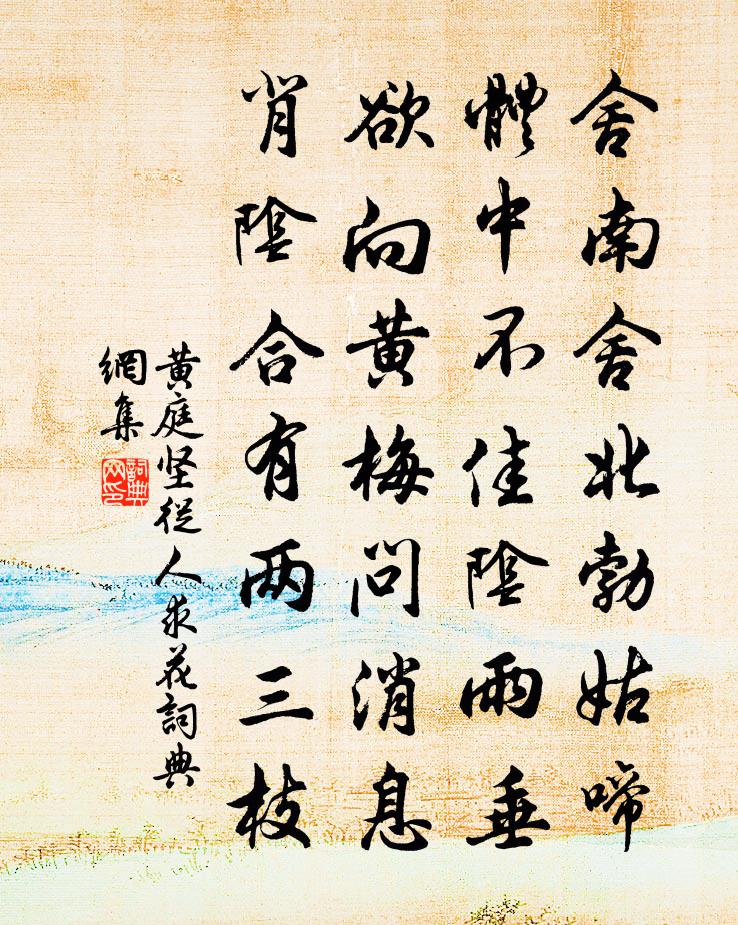 舍南舍北勃姑啼
體中不佳陰雨垂
欲向黄梅問消息
背陰合有两三枝
黄庭坚從人求花詞典
網集
詞典網印